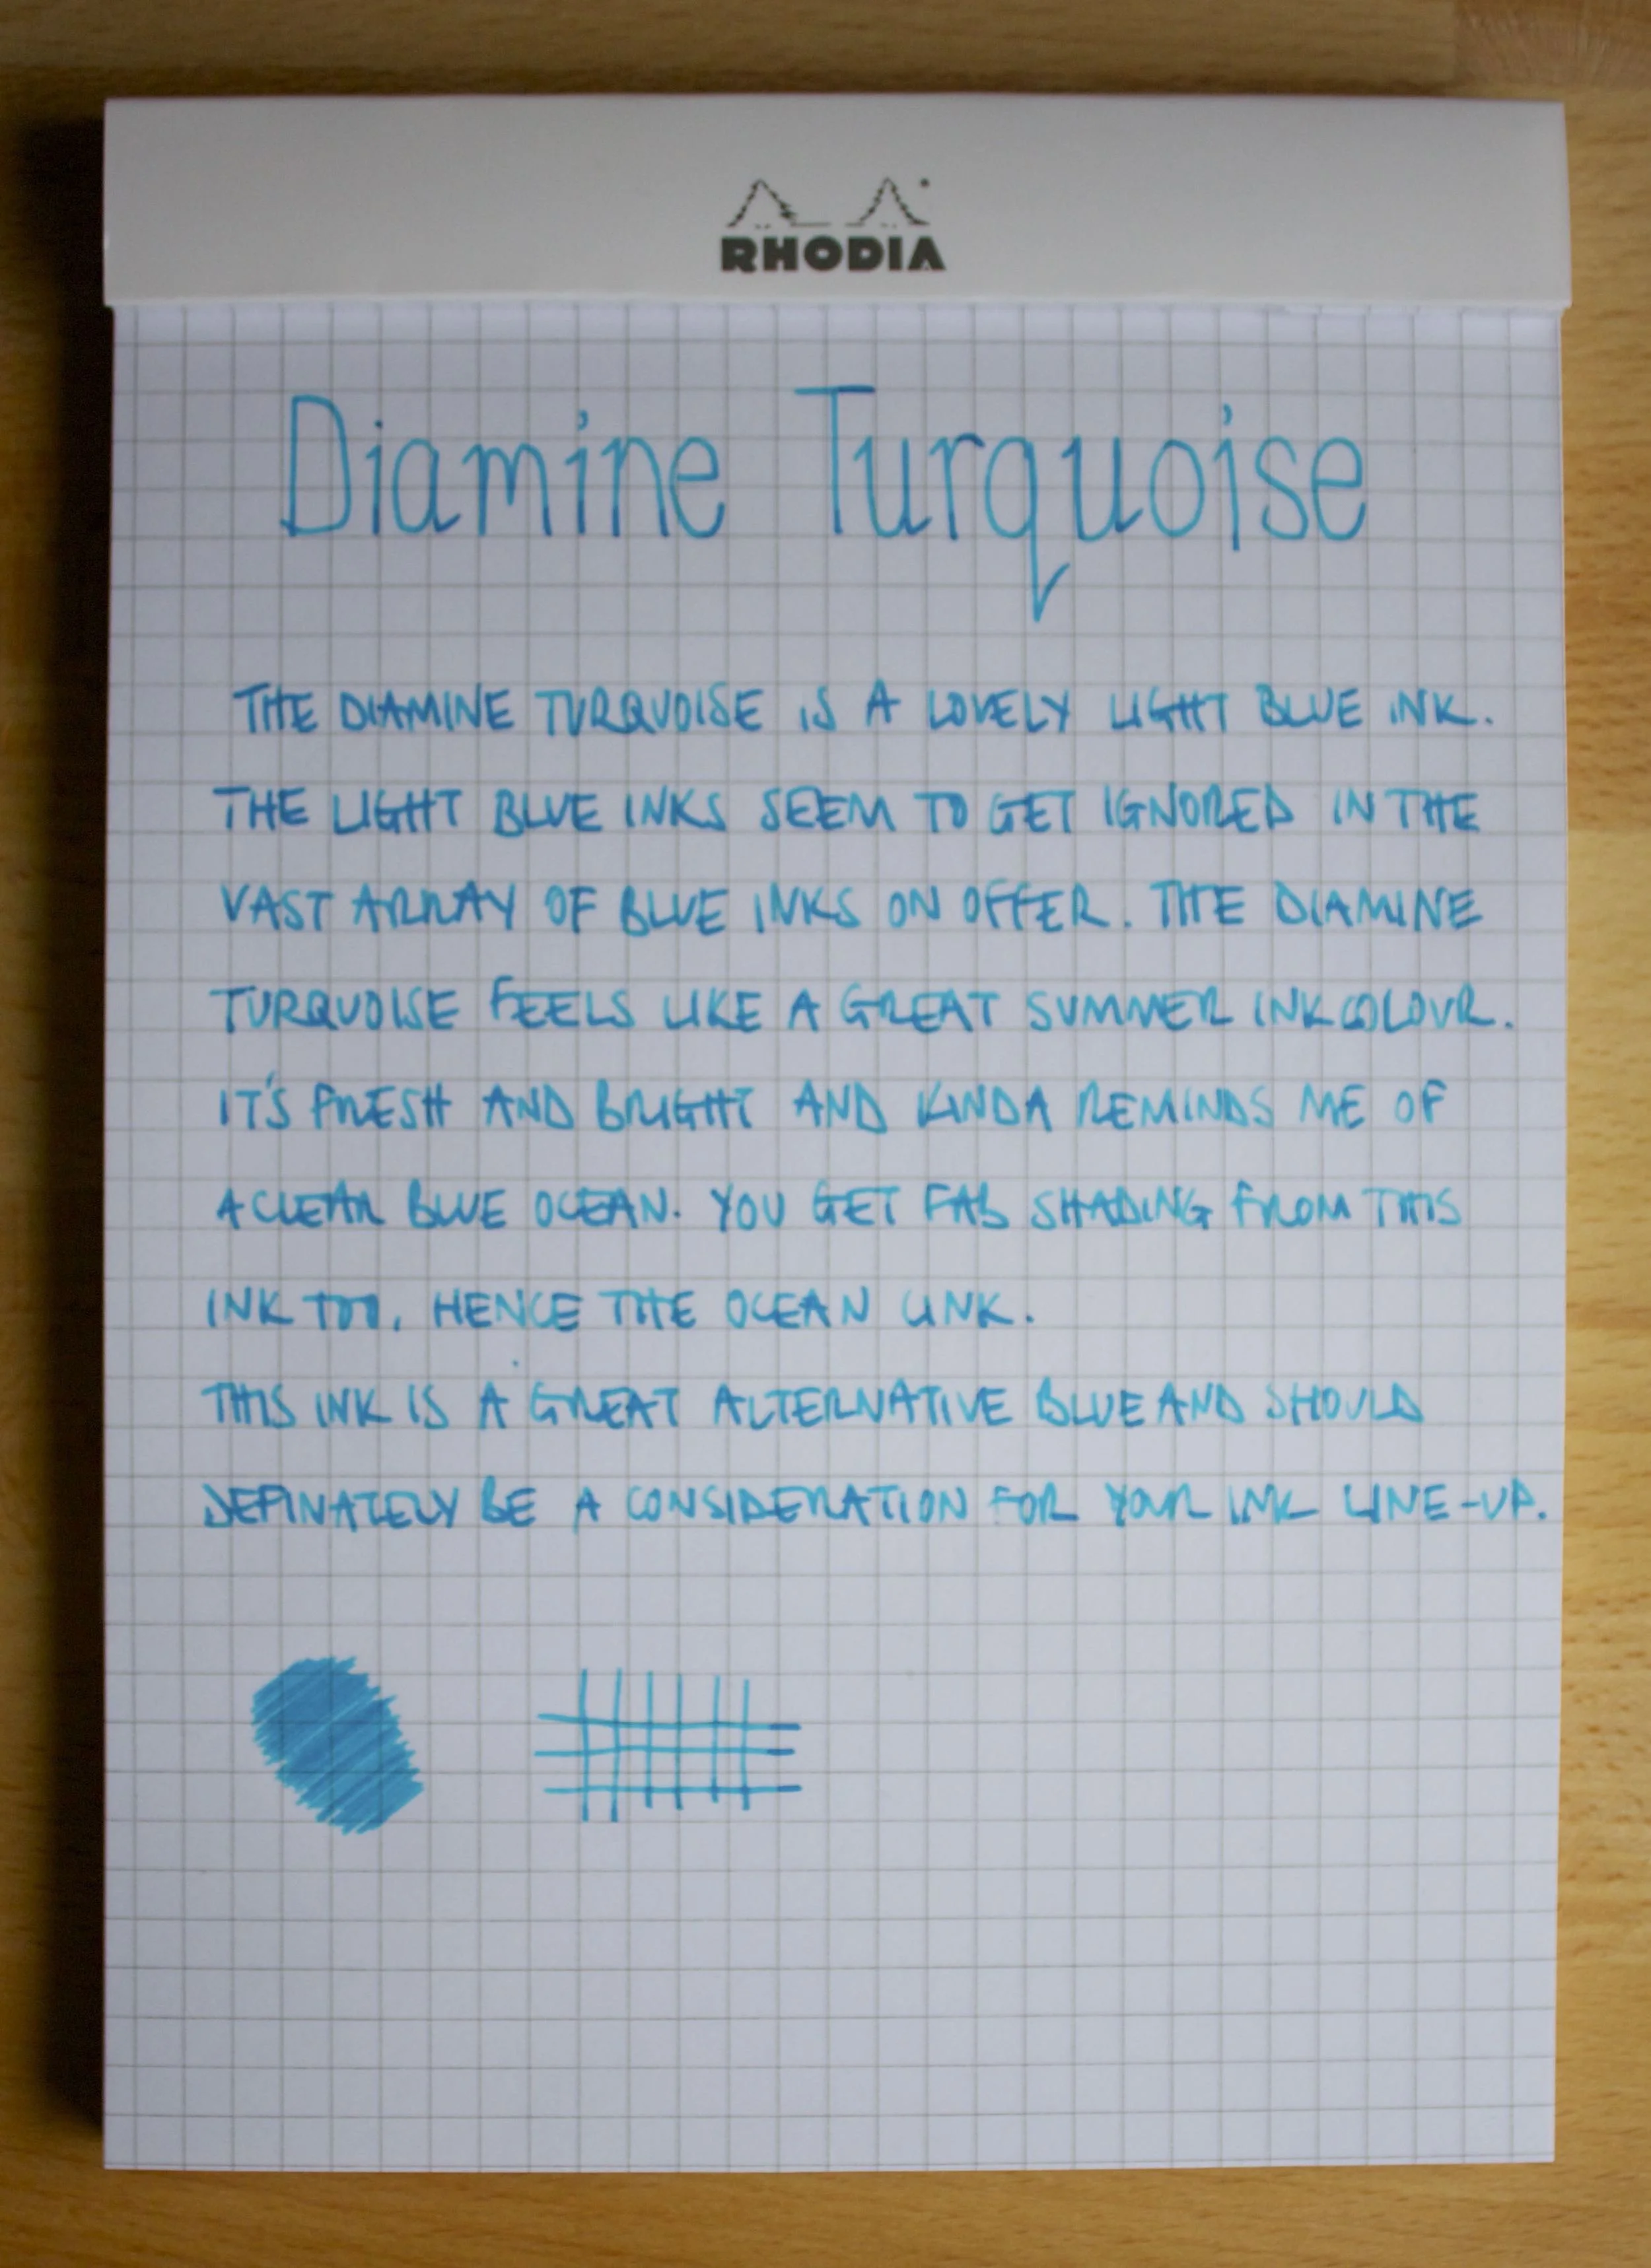 RHODIA
Diamine Turquoise
THE DIAMINE TURQUOISE IS A LOVELY LIGHT BLUE INK.
THE LIGHT BLUE INKS SEEM TO GET IGNORED IN THE
VAST ARRAY OF BLUE INKS ON OFFER. THE DIAMINE
TURQUOISE FEELS LIKE A GREAT SUMMER INK COLOUR.
IT'S FRESH AND BRIGHT AND KINDA REMINDS ME OF
A CLEAR BLUE OCEAN. YOU GET FAB SHADING FROM THIS
INK TOO, HENCE THE OCEAN LINK.
THIS INK IS A GREAT ALTERNATIVE BLUE AND SHOULD
DEFINATELY BE A CONSIDERATION FOR YOUR INK LINE-UP.